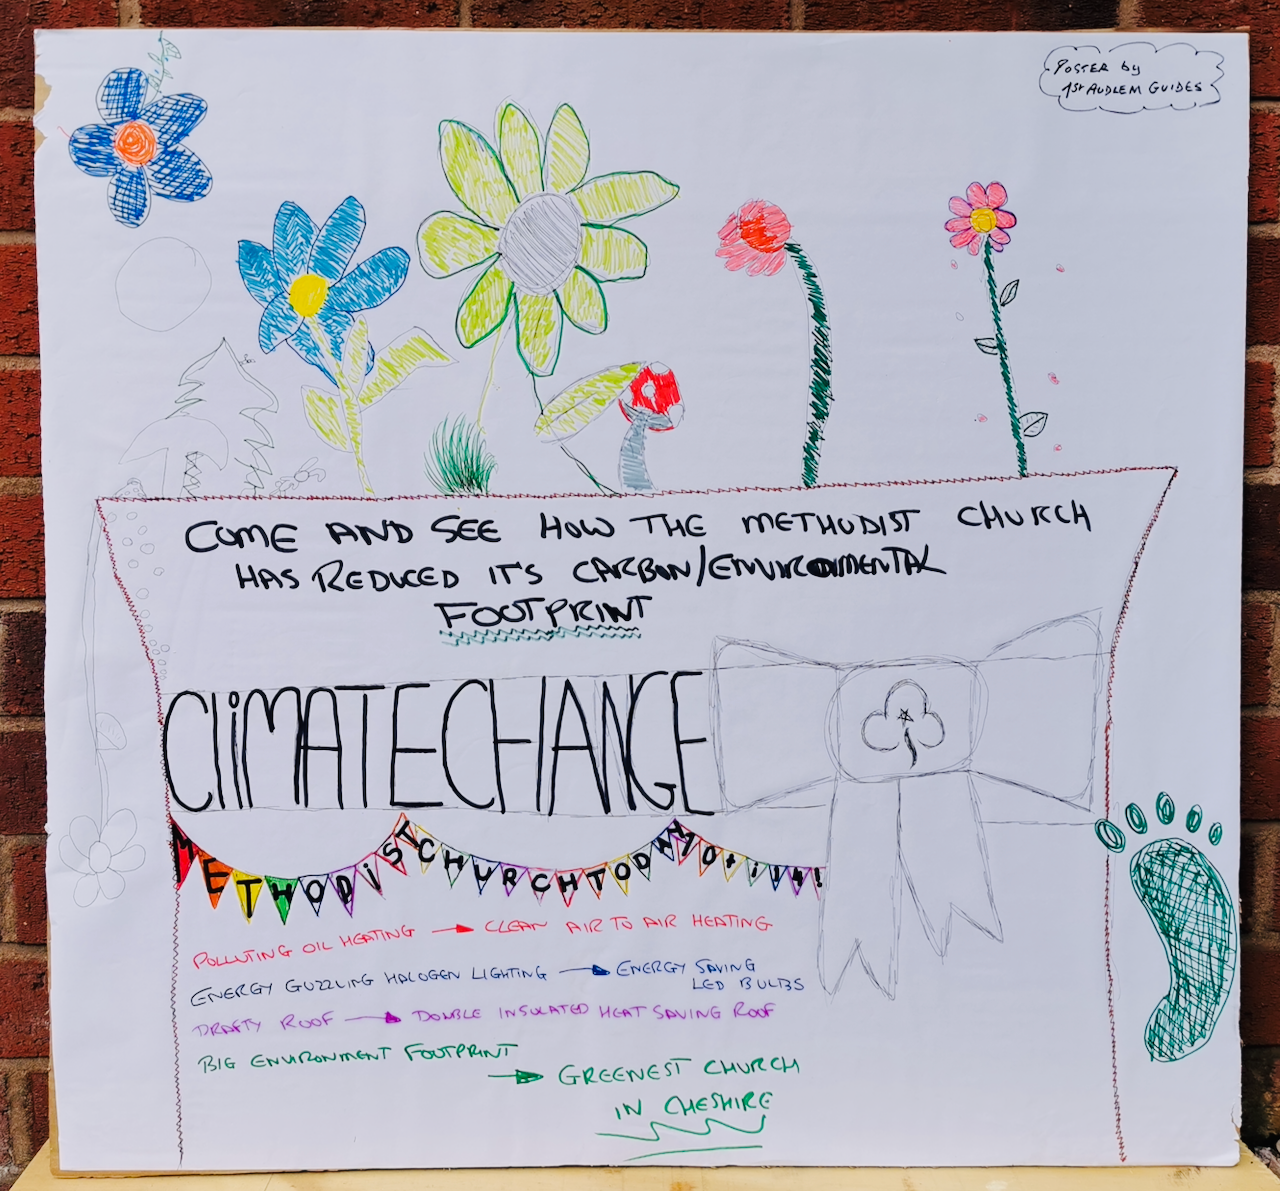 POSTER by
1ST AUDLEM GUIDES
COME AND SEE HOW THE METHODIST CHURCH
HAS REDUCED IT'S CARBON/ENVIRONMENTAL
FOOTPRINT
CLiMATE CHANGE
METHODiST CHURCH TODAY 10 till 4!
POLLUTING OIL HEATING → CLEAN AIR TO AIR HEATING
ENERGY GUZZLING HALOGEN LIGHTING → ENERGY SAVING
LED BULBS
DRAFTY ROOF → DOUBLE INSULATED HEAT SAVING ROOF
BIG ENVIRONMENT FOOTPRINT
→ GREENEST CHURCH
IN CHESHIRE